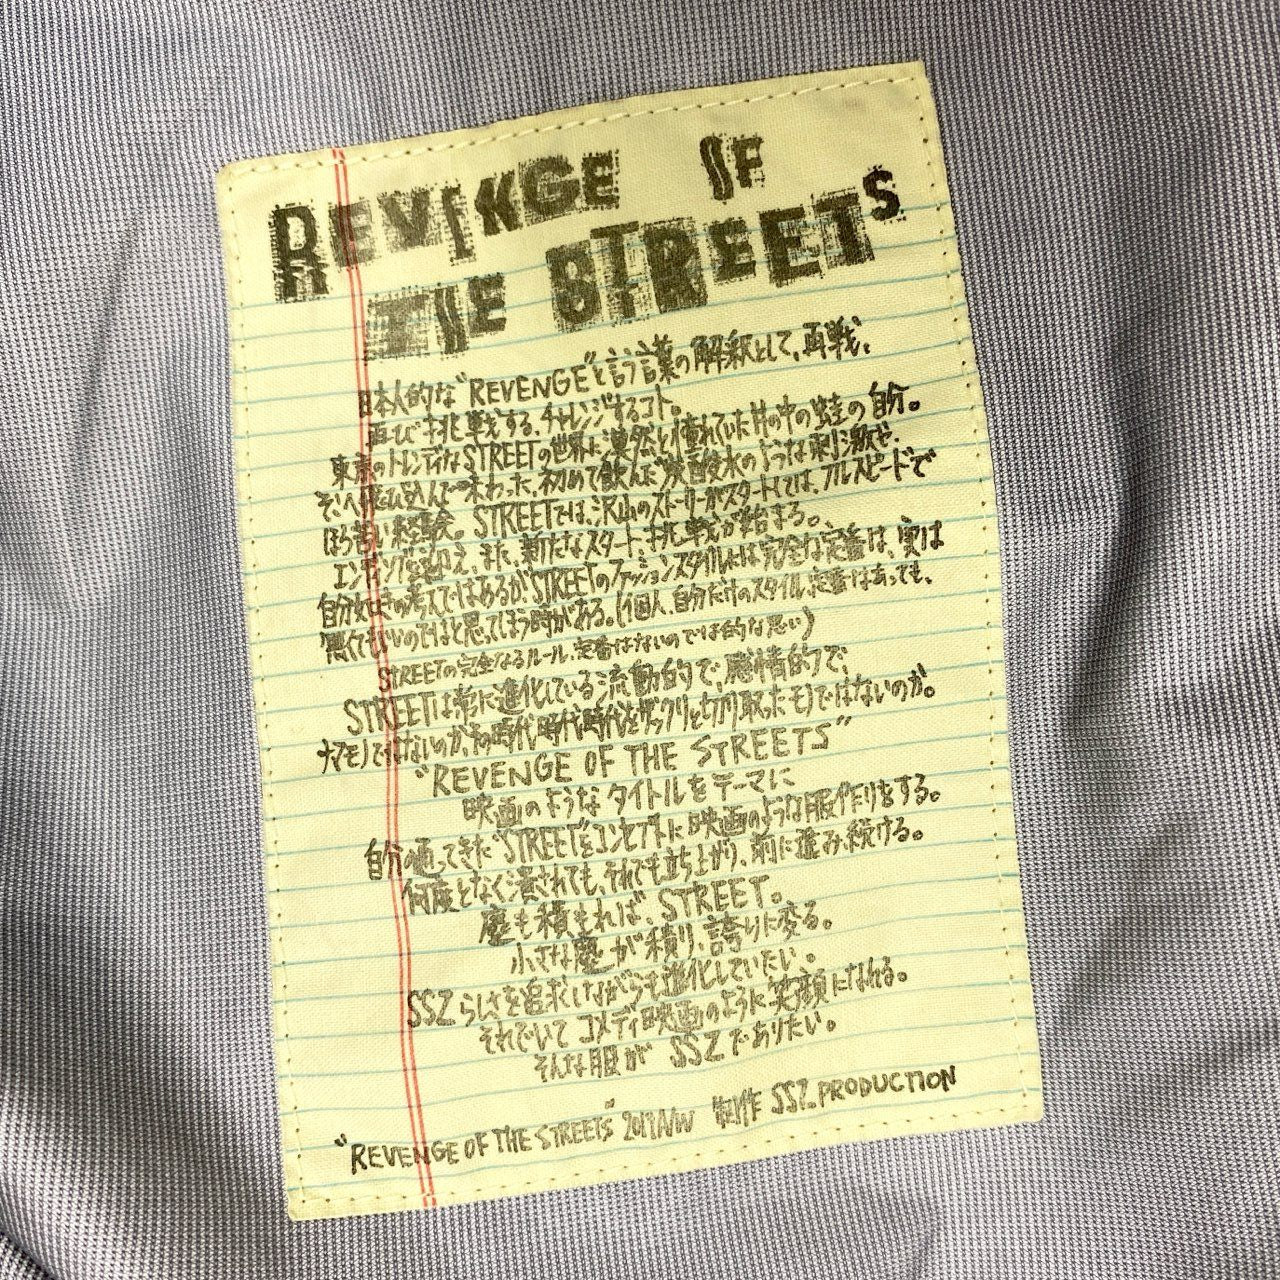 REVENGE OF
THE STREETS
日本人的な"REVENGE"と言う言葉の解釈として、再戦、
再び挑戦する、チャレンジするコト。
東京のトレンディなSTREETの世界に漠然と憧れていた井の中の蛙の自分。
そこへ飛び込んで味わった、初めて飲んだ炭酸水のような刺激や、
ほろ苦い経験。STREETでは、沢山のストーリーがスタートしては、フルスピードで
エンディングを迎え、また、新たなスタート、挑戦が始まる。
自分好きの考えではあるが、STREETのファッションスタイルには完全な定番は、実は
無くてもいいのではと思ってしまう時がある。(個人、自分だけのスタイル、定番はあっても、
STREETの完全なるルール、定番はないのでは的な思い)
STREETは常に進化している流動的で、感情的で、
ナマモノではないのか、その時代時代時代をザックリと切り取ったモノではないのか。
"REVENGE OF THE STREETS"
映画のようなタイトルをテーマに
自分の通ってきた"STREET"をコンセプトに映画のような服作りをする。
何度となく潰されても、それでも立ち上がり、前に進み続ける。
塵も積もれば、STREET。
小さな塵が積り、誇りに変る。
SSZらしさを追求しながらも進化していたい。
それでいてコメディ映画のように笑顔になれる。
そんな服が SSZでありたい。
"REVENGE OF THE STREETS" A/W 制作 SSZ PRODUCTION